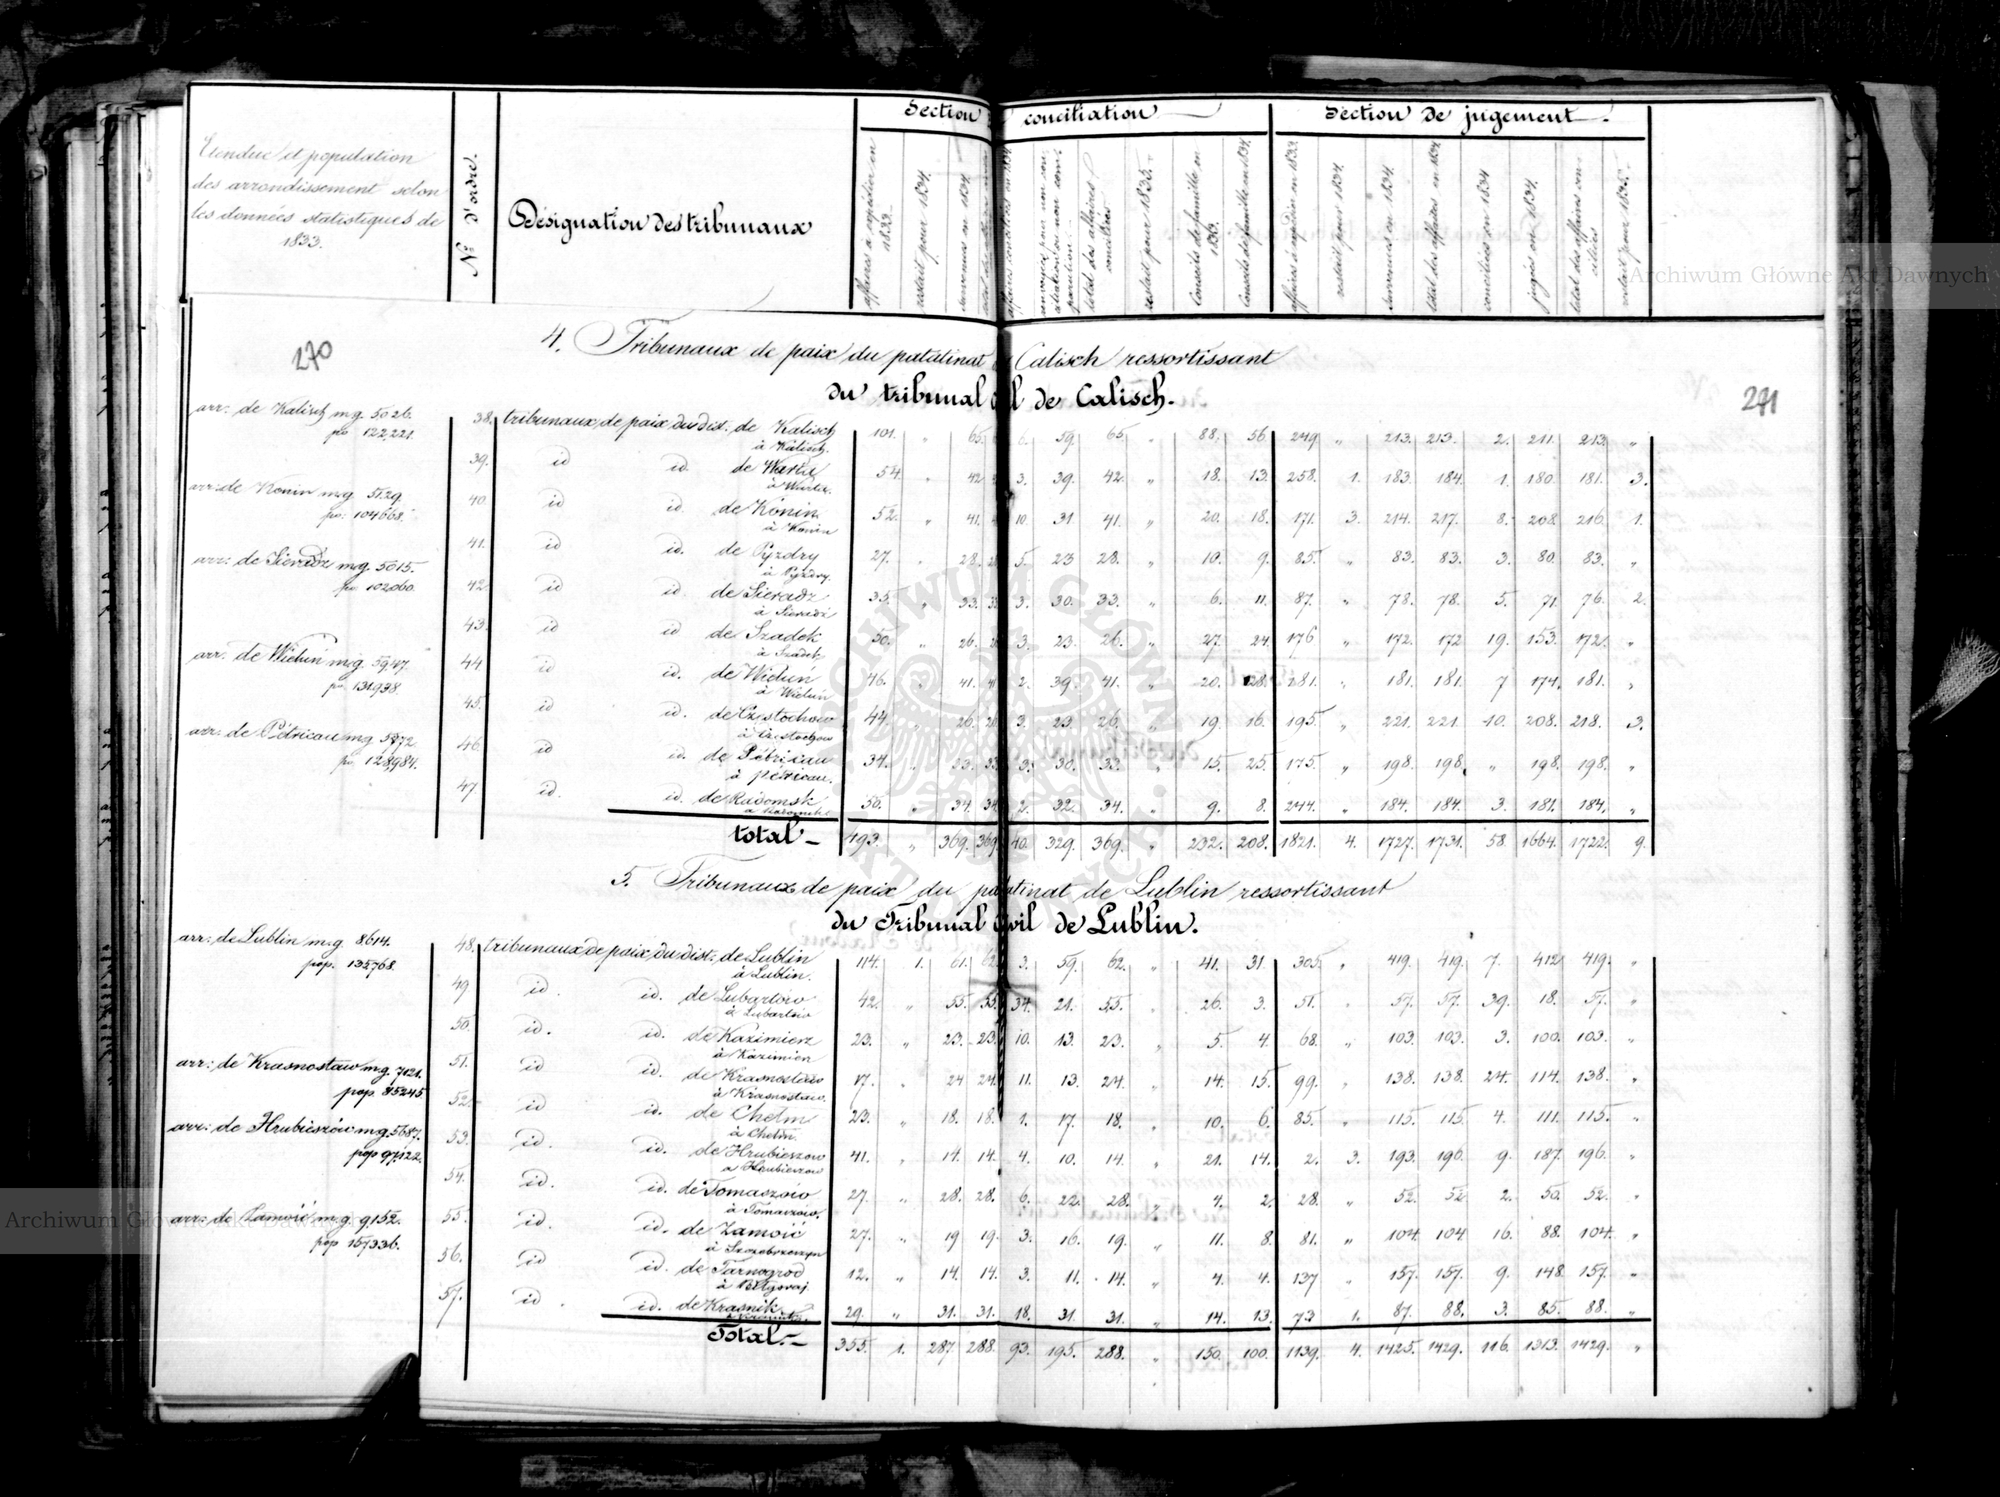 Section conciliation
Section de jugement
Etendue et population
des arrondissement selon
les données statistiques de
1833.
No d'ordre.
Désignation des tribunaux
affaires à expédier en 1833.
restait pour 1834.
survenues en 1834.
affaires conciliées en 1834.
total des affaires conciliées
restait pour 1835.
Conseils de famille en
Conseils de famille en 1834.
affaires à expédier en 1833.
restait pour 1834.
survenues en 1834.
total des affaires en 1834
conciliées en 1834
jugées en 1834.
total des affaires conciliées
restait pour 1835.
270
4. Tribunaux de paix du palatinat Calisch ressortissant
du tribunal de Calisch.
271
arr: de Kalisch m.g. 5026.
po 122,221.
38. tribunaux de paix du dist. de Kalisch 101. " 65. 6. 59. 65. " 88. 56 249 " 213. 213. 2. 211. 213. "
à Kalisch.
39. id id. de Warta 54. " 42. 3. 39. 42. " 18. 13. 258. 1. 183. 184. 1. 180. 181. 3.
à Warta.
arr: de Konin m.g. 5129.
po: 104668.
40. id id. de Konin 52. " 41. 10. 31. 41. " 20. 18. 171. 3. 214. 217. 8. 208. 216. 1.
à Konin
41. id id. de Pyzdry 27. " 28. 5. 23 28. " 10. 9. 85. " 83. 83. 3. 80. 83. "
à Pyzdry.
arr: de Sieradz m.g. 5015.
po 102,060.
42. id id. de Sieradz 35. " 33. 3. 30. 33. " 6. 11. 87. " 78. 78. 5. 71. 76. 2.
à Sieradz
43. id id de Szadek 50. " 26. 3. 23. 26. " 27. 24. 176 " 172. 172 19. 153. 172. "
à Szadek
arr: de Wieluń m.g. 5947.
po 131938.
44 id id. de Wieluń 46. 41. 2. 39. 41. " 20. 28. 281. " 181. 181. 7 174. 181. "
à Wieluń
45. id id. de Częstochow 44. " 26. 3. 23. 26. " 19. 16. 195. " 221. 221. 10. 208. 218. 3.
à Częstochow
arr: de Pétricau m.g. 5772.
po 128,984.
46. id id. de Pétricau 34. " 33. 3. 30. 33. " 15. 25. 175. " 198. 198. " 198. 198. "
à Pétricau.
47 id. id. de Radomsk 50. " 34. 34. 2. 32. 34. " 9. 8. 244. " 184. 184. 3. 181. 184. "
total 193. " 369. 369. 40. 329. 369. " 232. 208. 1821. 4. 1727. 1731. 58. 1664. 1722. 9.
5. Tribunaux de paix du palatinat de Lublin ressortissant
du Tribunal Civil de Lublin.
arr: de Lublin m.g. 8614.
pop. 135,768.
48. tribunaux de paix du dist. de Lublin 114. 1. 61. 62. 3. 59. 62. " 41. 31. 305. " 419. 419. 7. 412 419. "
à Lublin.
49 id. id. de Lubartów 42. " 55. 55. 34. 21. 55. " 26. 3. 51. " 57. 57. 39. 18. 57. "
à Lubartów
50. id. id. de Kazimierz 23. " 23. 23. 10. 13. 23. " 5. 4. 68. " 103. 103. 3. 100. 103. "
à Kazimierz
arr: de Krasnostaw m.g. 7121.
pop. 85245.
51. id id. de Krasnostaw 17. " 24 24. 11. 13. 24. " 14. 15. 99. " 138. 138. 24. 114. 138. "
à Krasnostaw.
52. id id. de Chelm 23. " 18. 18. 1. 17. 18. " 10. 6. 85. " 115. 115. 4. 111. 115. "
à Chelm.
arr: de Hrubieszów m.g. 5687.
pop 97,122.
53. id. id. de Hrubieszow 41. " 14. 14. 4. 10. 14. " 21. 14. 2. 3. 193. 196. 9. 187. 196. "
à Hrubieszow
54. id. id. de Tomaszow 27. " 28. 28. 6. 22. 28. " 4. 2. 28. " 52. 52 2. 50. 52. "
à Tomaszow.
arr: de Zamość m.g. 9,152.
pop 157,336.
55. id. id. de Zamość 27. " 19 19. 3. 16. 19. " 11. 8. 81. " 104. 104 16. 88. 104. "
à Szczebrzeszyn
56. id id. de Tarnogrod 12. " 14. 14. 3. 11. 14. " 4. 4. 137 " 157. 157. 9. 148. 157. "
à Biłgoraj
57. id. id. de Krasnik 29. " 31. 31. 18. 31. 31. " 14. 13. 73 1. 87. 88. 3. 85. 88. "
Total. 355. 1. 287 288. 93. 195. 288. " 150. 100. 1139. 4. 1425. 1429. 116. 1313. 1429. "
Archiwum Główne Akt Dawnych
Archiwum Główne Akt Dawnych
ARCHIWUM GŁÓWNE AKT DAWNYCH